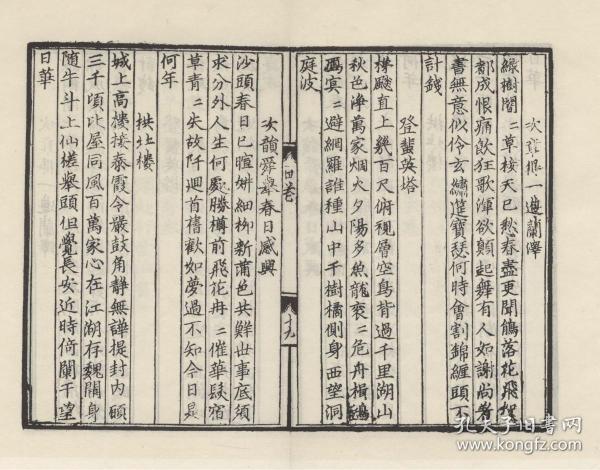 次韻一遵蘭澤
綠樹二草天巳愁春盡更聞鵑落花飛絮
都成恨痛飲狂歌渾欲顛起舞有人如謝尚著
書無意似伶玄繡筵寶瑟何時會割錦纏頭不
計錢
登蜚英塔
直上幾百尺俯視層空鳥背過千里湖山
秋色淨萬家烟火夕陽多魚龍袞二危舟楫鴻
冥二避網羅誰種山中千樹橘側身西望洞
庭波
四卷
十九
次韻舜舉春日感興
沙頭春日巳暄妍細柳新蒲色共鮮世事底須
求分外人生何處勝樽前飛花冉二催華髮宿
草青二失故阡迴首舊歡如夢過不知今日是
何年
拱北樓
城上高樓接霞令嚴鼓角靜無譁提封內
三千頃比屋同風百萬家心在江湖存魏闕身
隨牛斗上仙槎舉頭但覺長安近時倚闌干望
日華
孔夫子旧书网
www.kongfz.com